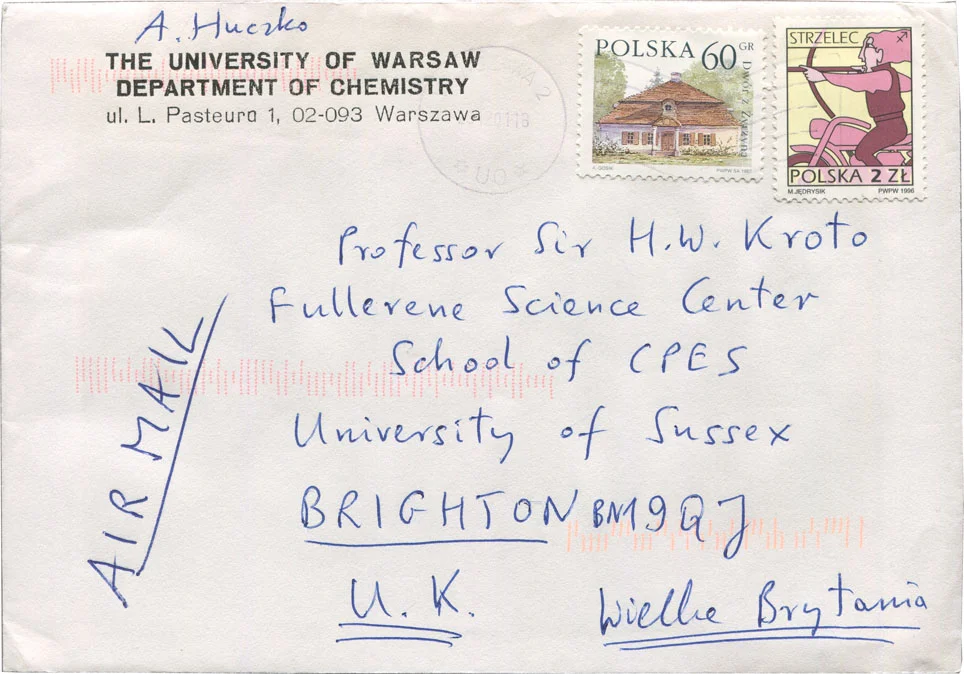 A. Huczko
THE UNIVERSITY OF WARSAW
DEPARTMENT OF CHEMISTRY
ul. L. Pasteura 1, 02-093 Warszawa
2
UO
POLSKA 60 GR
DWÓR Z
STRZELEC
POLSKA 2 ZŁ
M.JĘDRYSIK PWPW 1996
Professor Sir H.W. Kroto
Fullerene Science Center
School of CPES
University of Sussex
BRIGHTON BN1 9QJ
U.K.
Wielka Brytania
AIR MAIL